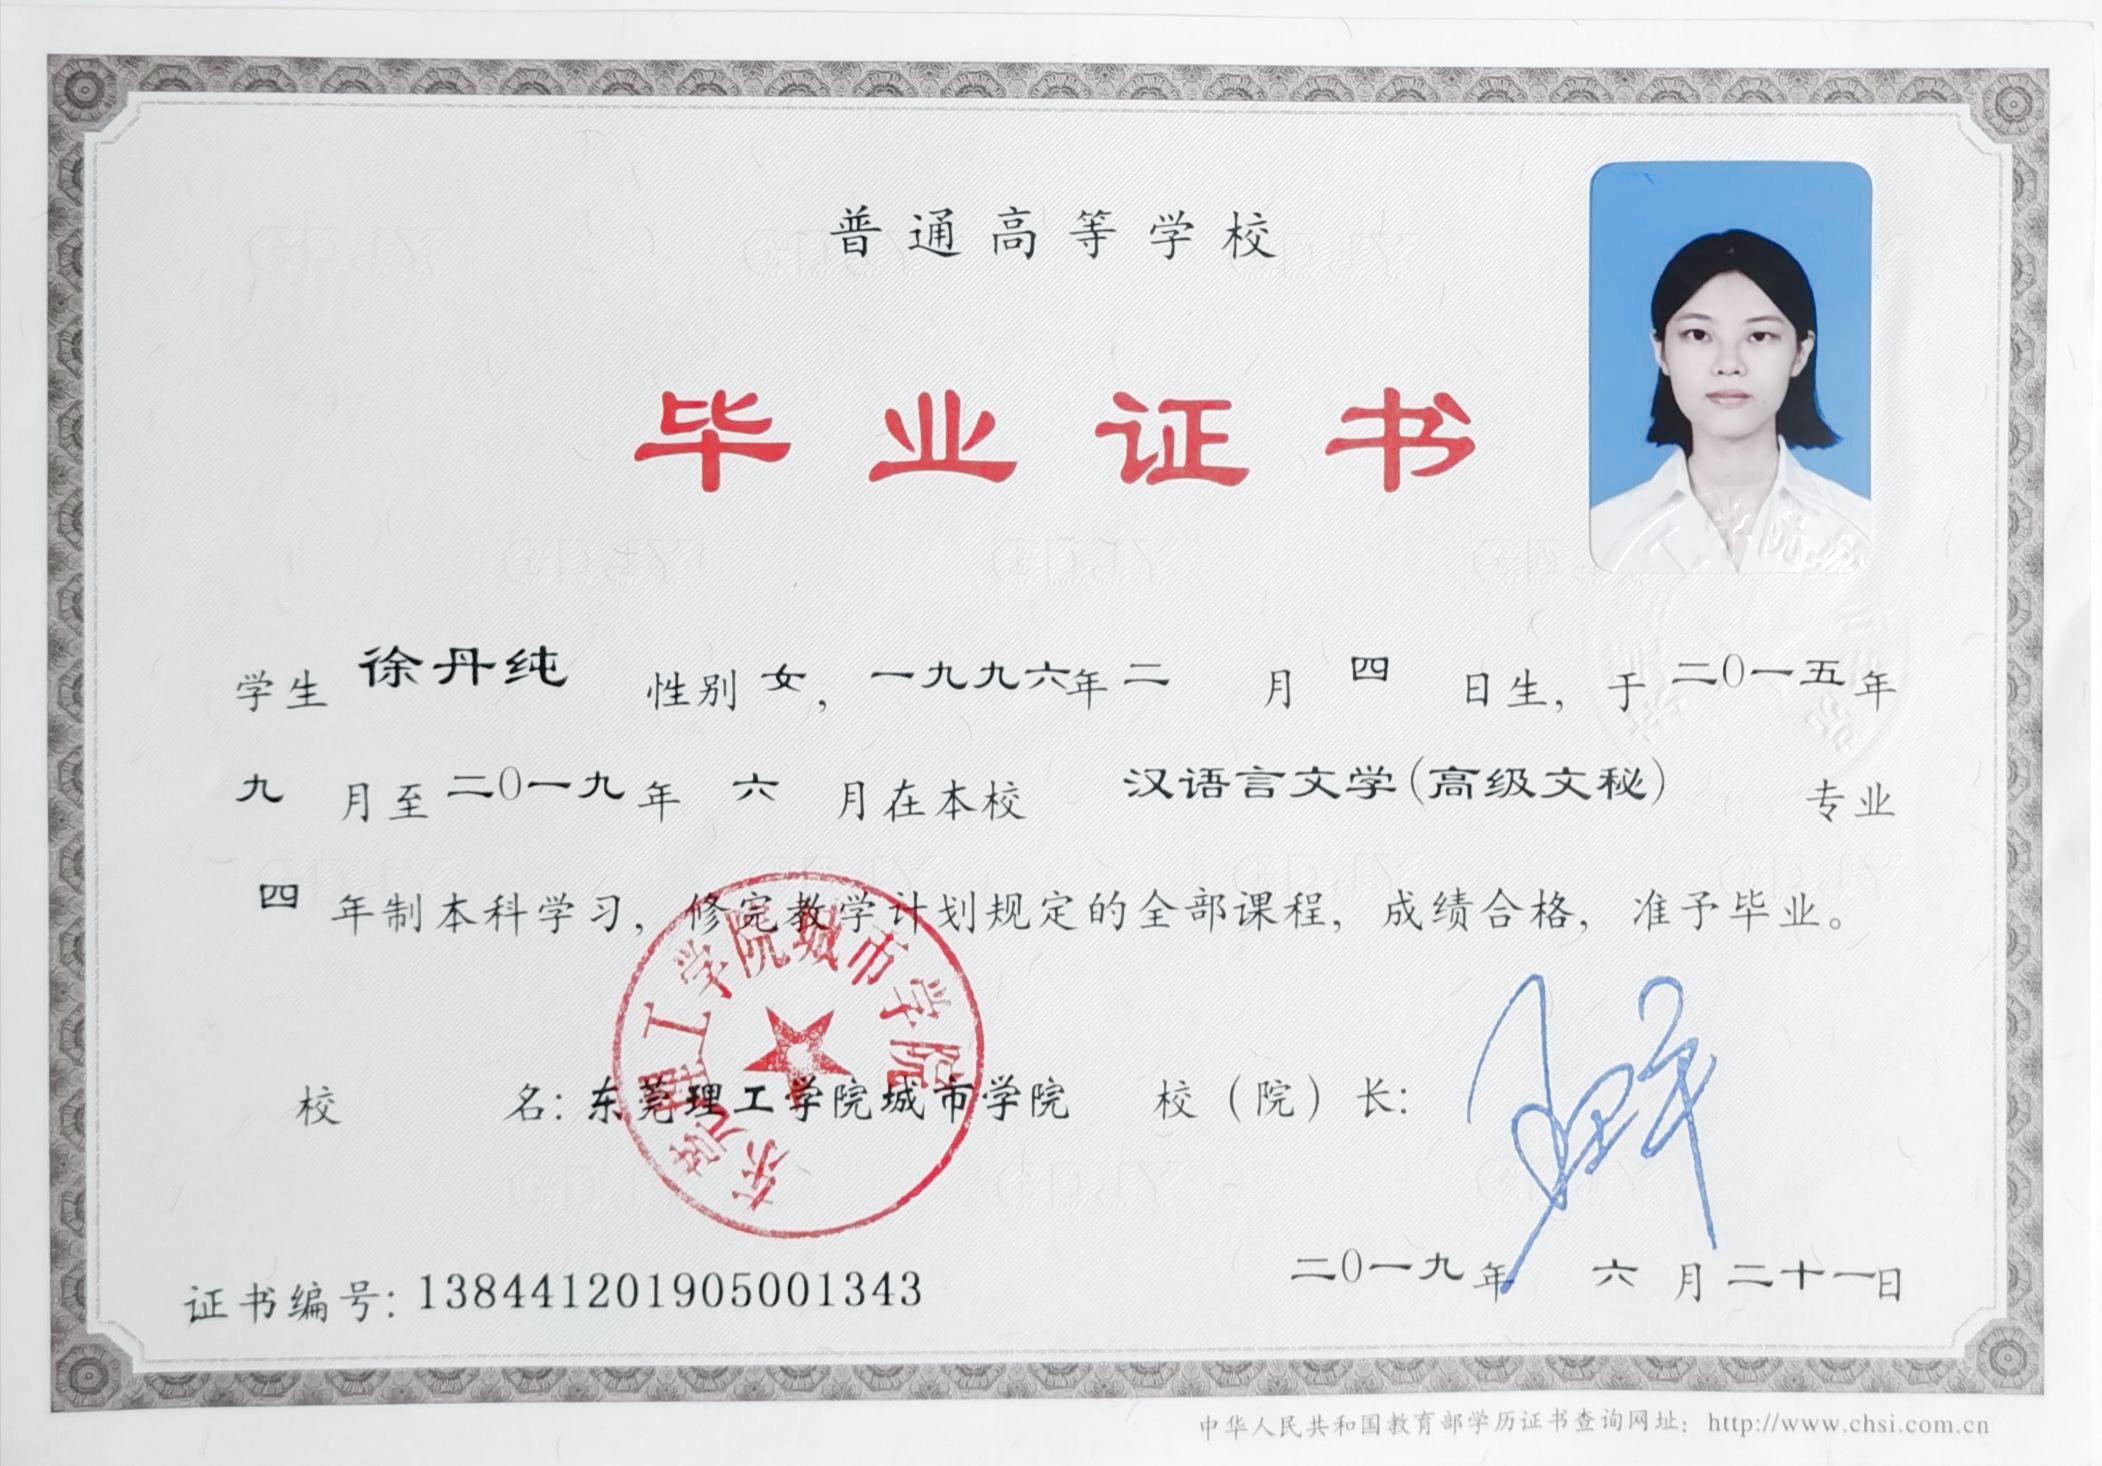 普通高等学校
毕业证书
学生 徐丹纯 性别 女，一九九六年 二 月 四 日生，于 二〇一五 年
九 月至 二〇一九 年 六 月在本校 汉语言文学(高级文秘) 专业
四 年制本科学习，修完教学计划规定的全部课程，成绩合格，准予毕业。
东莞理工学院城市学院
校 名：东莞理工学院城市学院 校（院）长：
二〇一九 年 六 月 二十一日
证书编号：138441201905001343
中华人民共和国教育部学历证书查询网址：http://www.chsi.com.cn